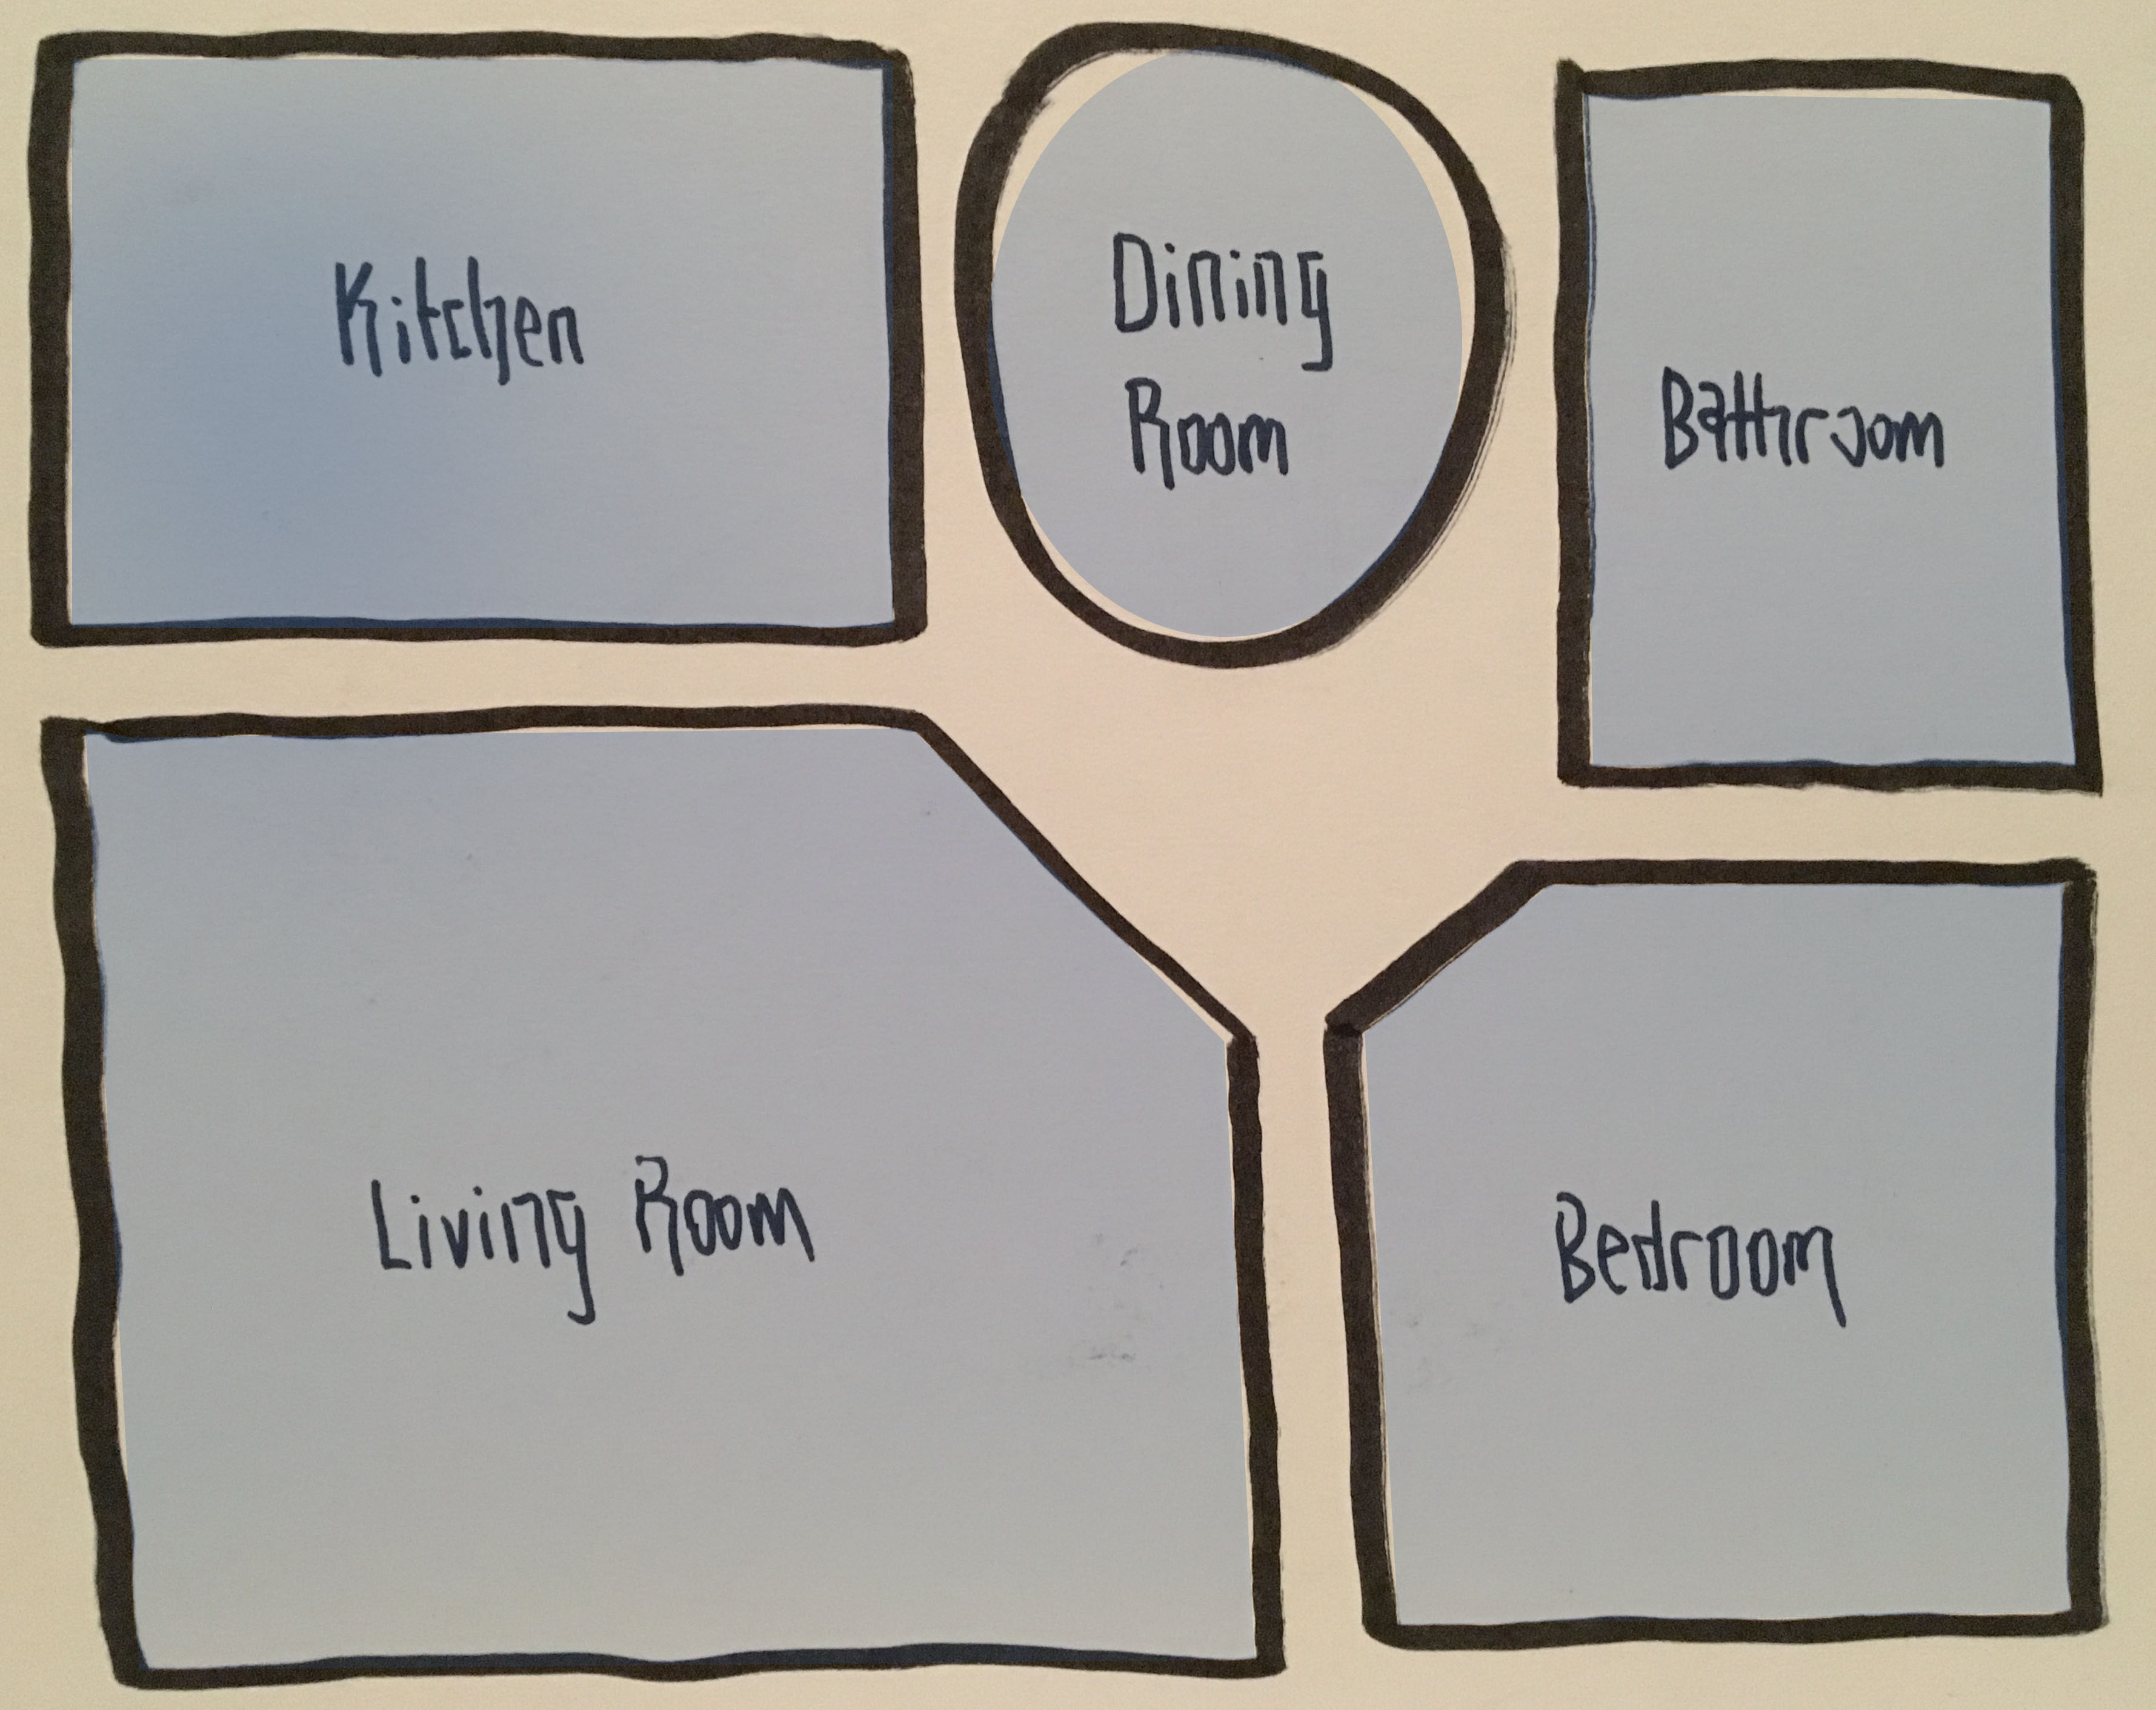 Kitchen
Dining
Room
Bathroom
Living Room
Bedroom